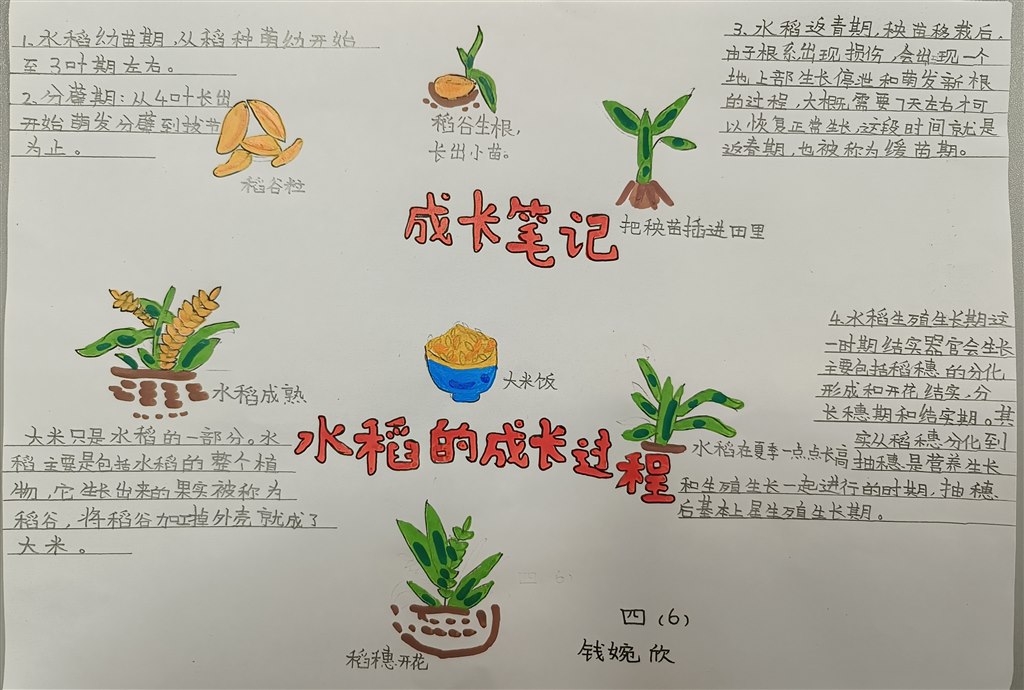 1、水稻幼苗期,从稻种萌幼开始
至3叶期左右。
2、分蘖期:从4叶长出
开始萌发分蘖到拔节
为止。
稻谷粒
稻谷生根,
长出小苗。
3、水稻返青期,秧苗移栽后,
由于根系出现损伤,会出现一个
地上部生长停泄和萌发新根
的过程,大概需要7天左右才可
以恢复正常生长,这段时间就是
返春期,也被称为缓苗期。
把秧苗插进田里
成长笔记
水稻成熟
大米饭
水稻的成长过程
4.水稻生殖生长期这
一时期结实器官会生长
主要包括稻穗的分化
形成和开花结实,分
长穗期和结实期。其
实从稻穗分化到
抽穗是营养生长
和生殖生长一起进行的时期,抽穗
后基本上是生殖生长期。
水稻在夏季一点点长高
大米只是水稻的一部分。水
稻主要是包括水稻的整个植
物,它生长出来的果实被称为
稻谷,将稻谷加工掉外壳就成了
大米。
稻穗开花
四(6)
四(6)
钱婉欣